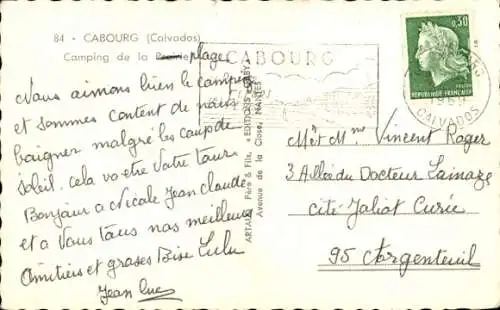 84 - CABOURG (Calvados)
Camping de la Prairie plage
Nous aimons bien le camping
et sommes content de nous
baigner malgré les coup de
soleil. cela va être Votre tour.
Bonjour a Nicole Jean claude
et a Vous tous nos meilleurs
Amitiers et groses Bise Lulu
Jean luc
ARTAUD Père & Fils, « EDITIONS GABY »
Avenue de la Close, NANTES
CABOURG
CALVADOS
0,30
REPUBLIQUE FRANÇAISE
M et Mme Vincent Roger
3 Allée du Docteur Lamaze
cité Joliot Curie
95 Argenteuil